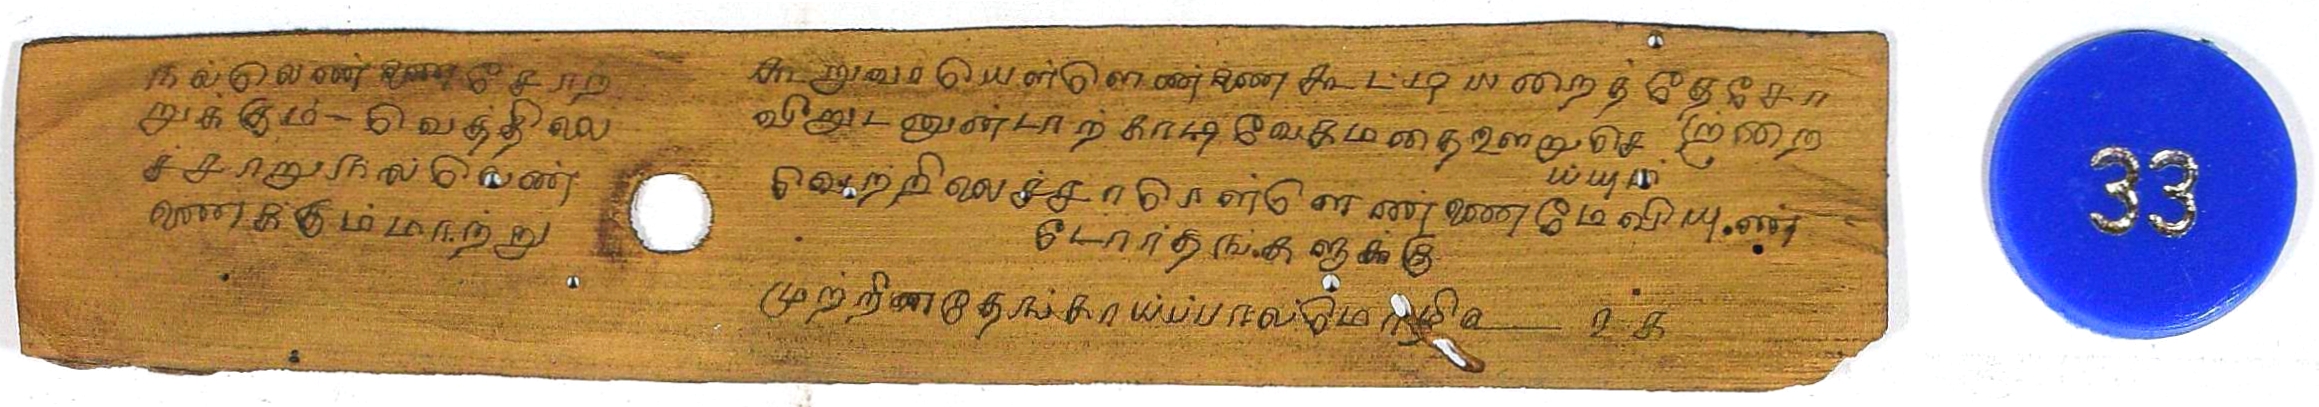 நல்லெண்ணை சோற
றுக்கும் - வெத்திலை
ச்சாறு நல்லெண்
ணைக்கும் மாற்று
கூறுவமயெள்ளெண்ணை கூட்டியறைத்தே சோ
விறுடனுண்டாற் காடி வேகமதை ஊறுசெ
ய்யும்
வெற்றிலைச்சாரெள்ளெண்ணை மேவியுண்
டோர்தங்களுக்கு
முற்றின தேங்காய்ப்பால் மொழி உ௧
33